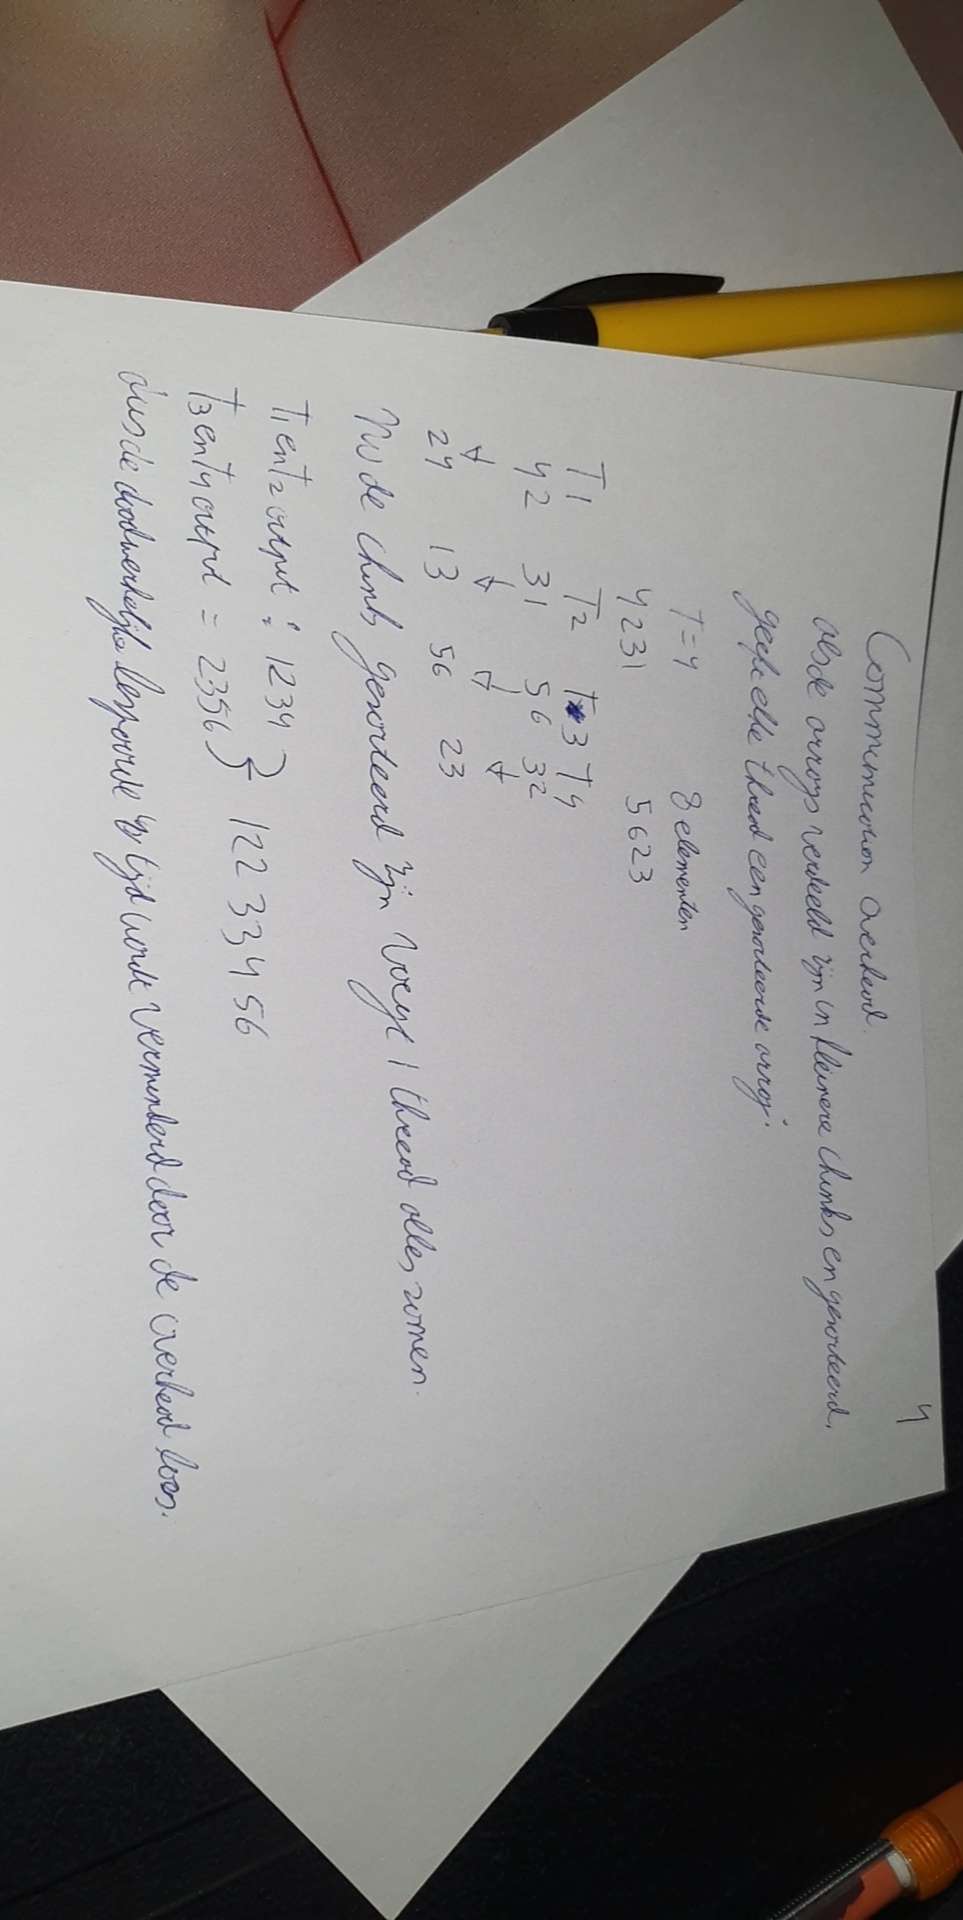 4
Communication overhead.
als de arrays verdeeld zijn in kleinere chunks en gesorteerd,
geeft elke thread een gesorteerde array.
T=4 8 elementen
4231 5623
T1 T2 T3 T4
42 31 56 32
↓ ↓ ↓ ↓
24 13 56 23
Nu de chunks gesorteerd zijn voegt 1 thread alles samen.
T1 en T2 output : 1234
T3 en T4 output = 2356 } 122 33 4 56
dus de daadwerkelijke besparing tijd wordt verminderd door de overhead